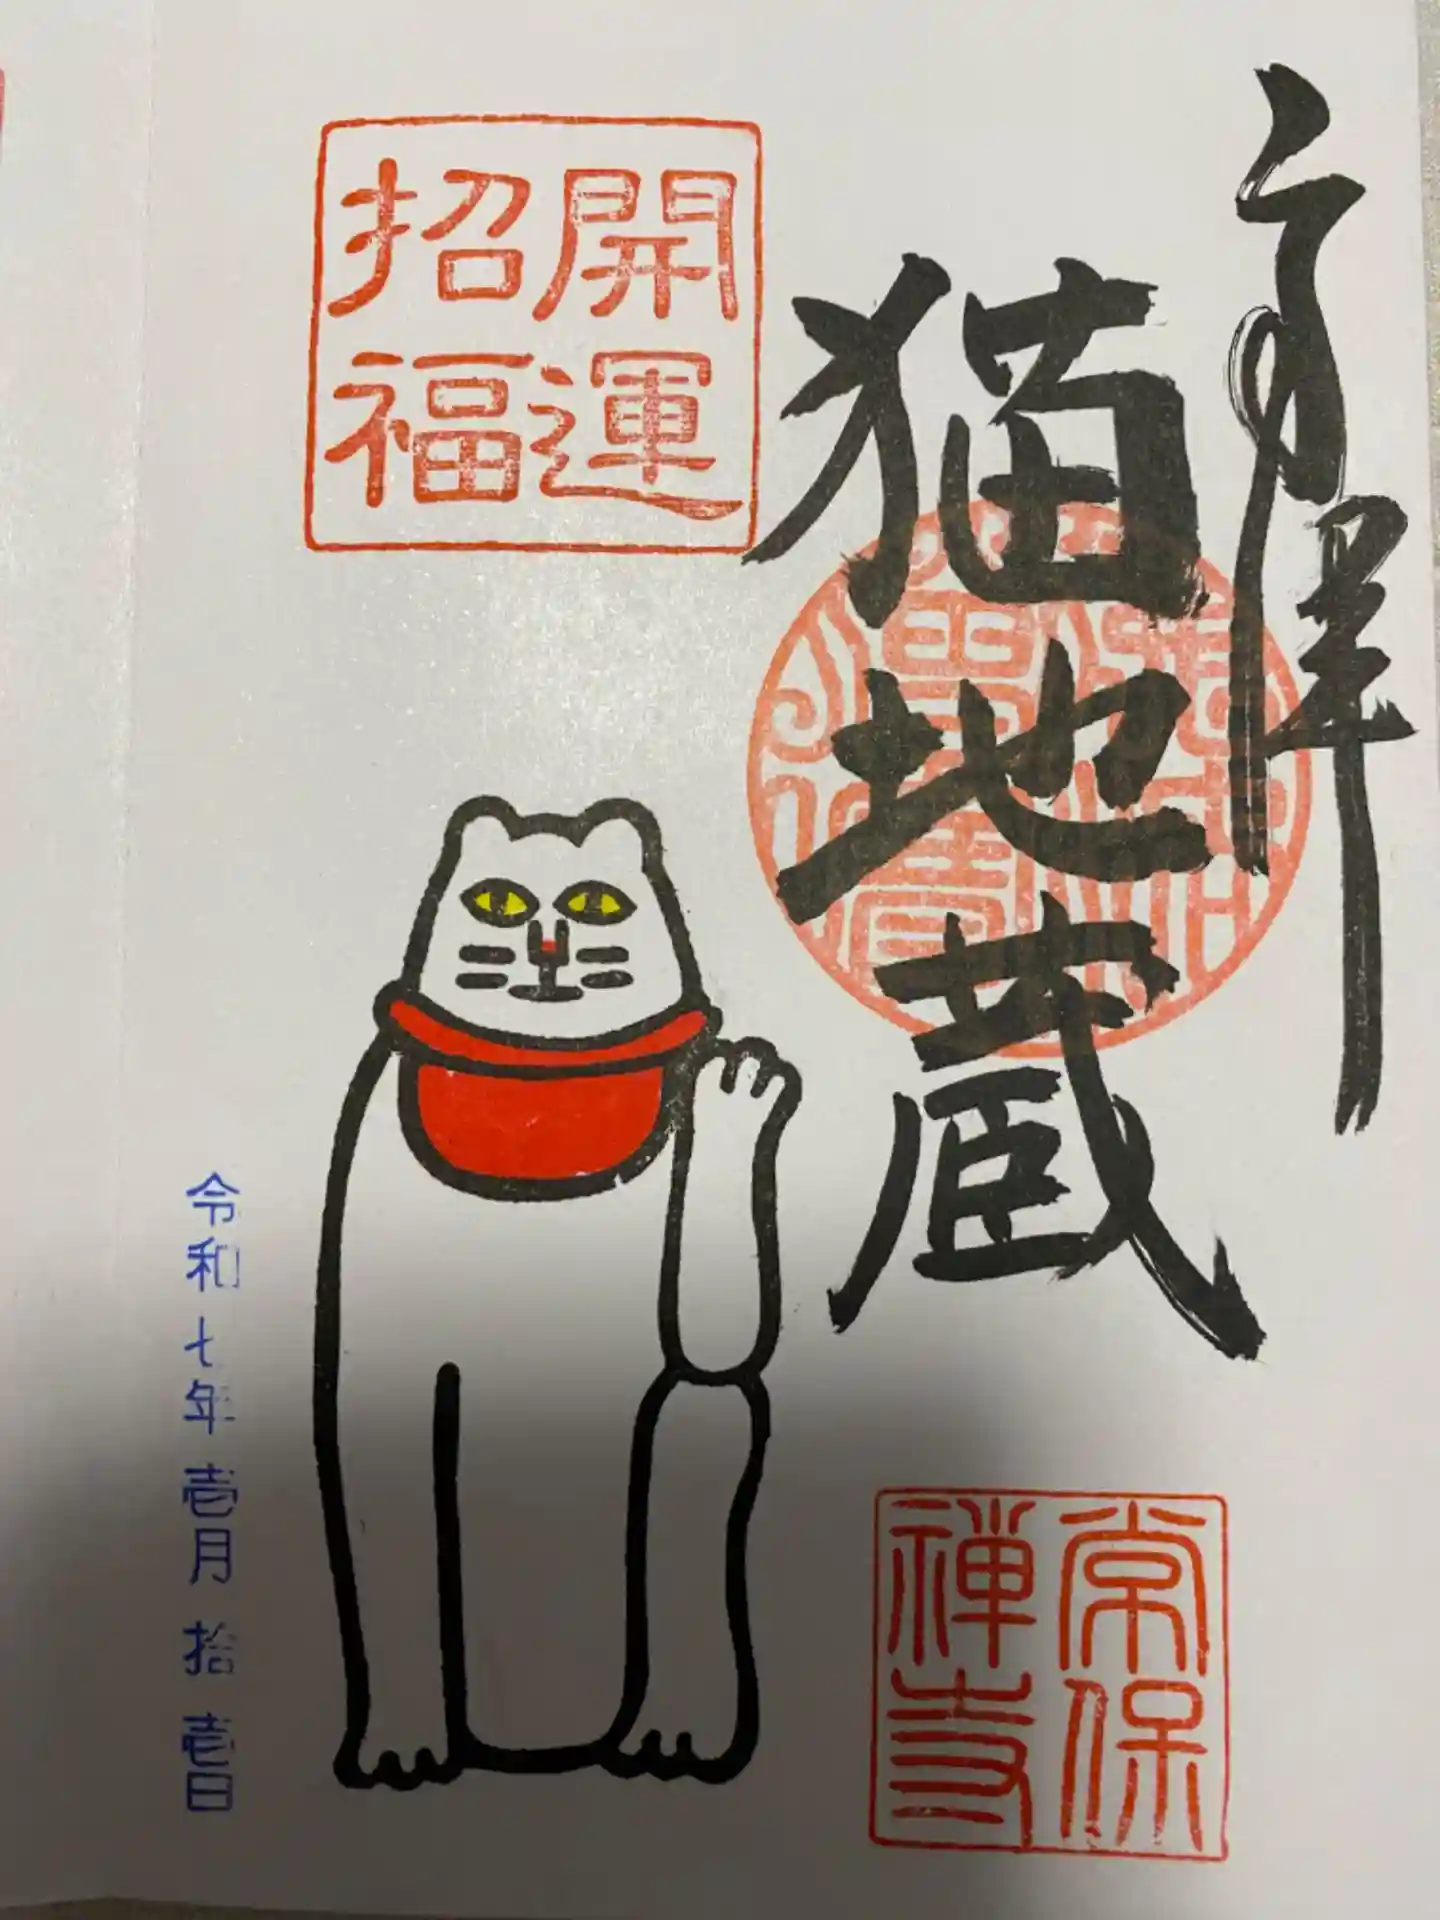 奉拝
猫地蔵
開運
招福
常保
禅寺
令和七年壱月拾壱日